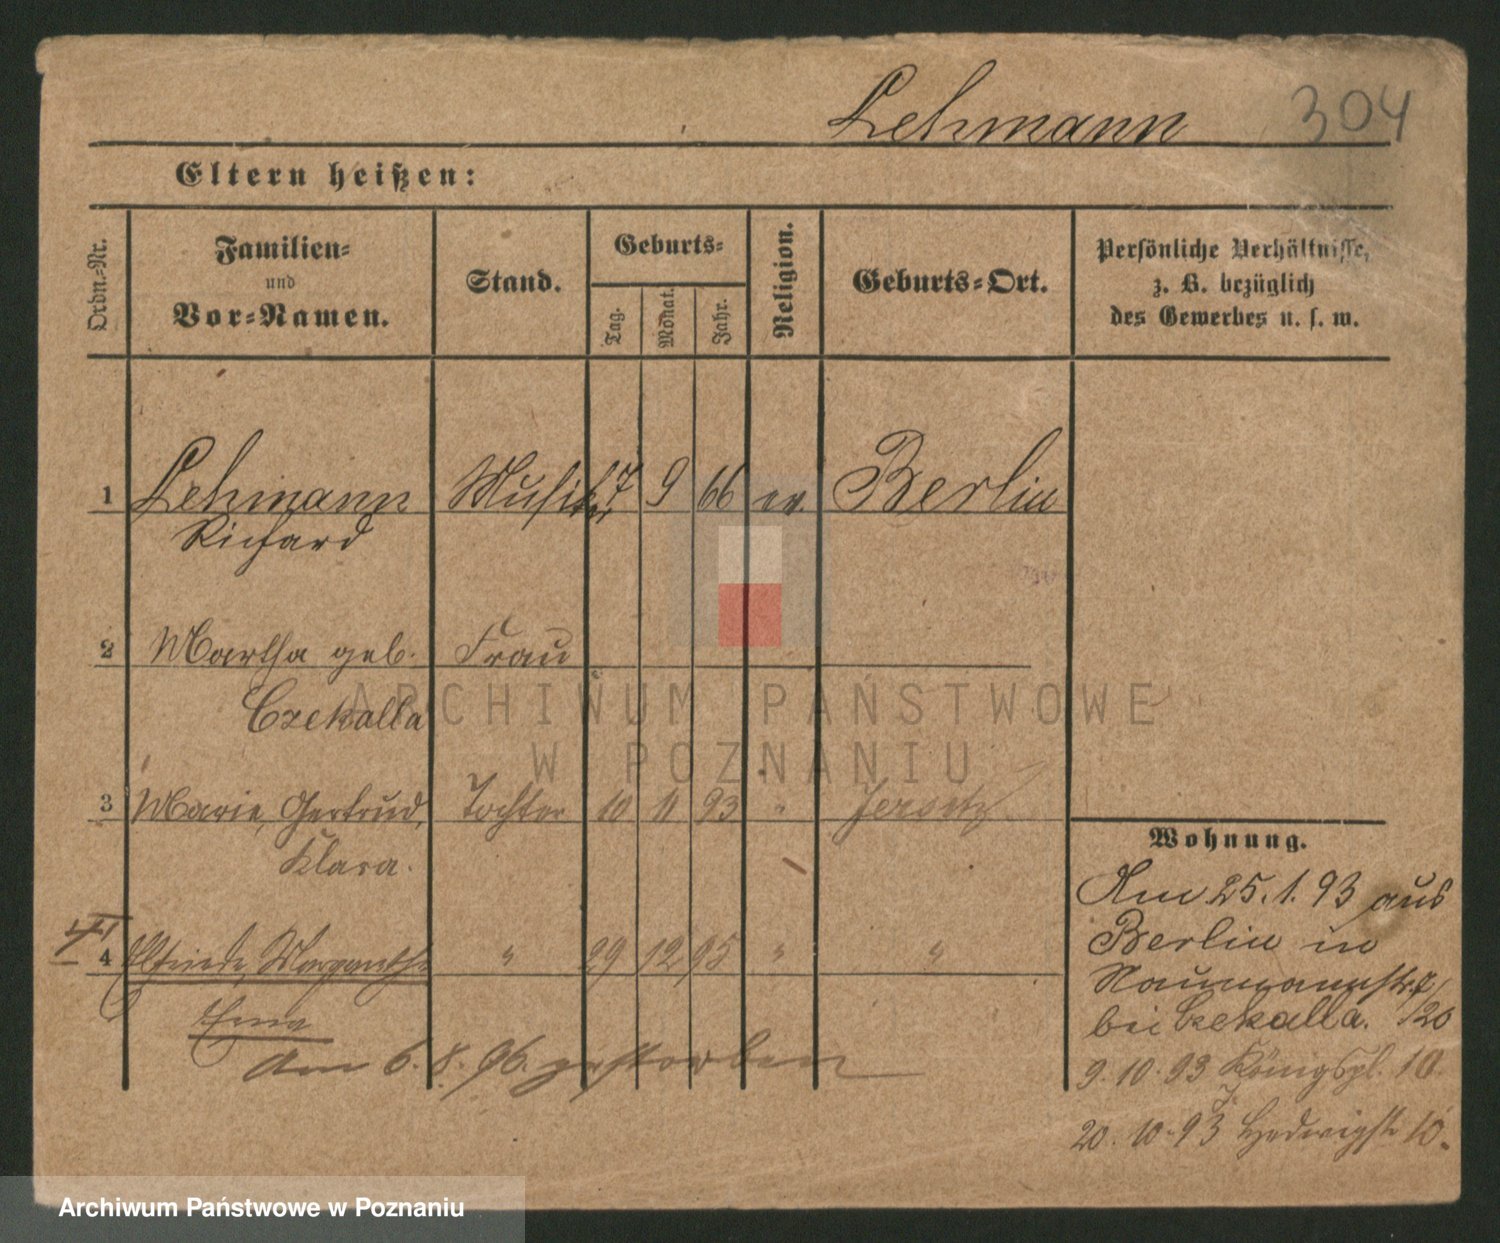 Lehmann 304
Eltern heißen:
Ordn.-Nr.
Familien-
und
Vor-Namen.
Stand.
Geburts-
Tag.
Monat.
Jahr.
Religion.
Geburts-Ort.
Persönliche Verhältnisse,
z. B. bezüglich
des Gewerbes u. s. w.
1 Lehmann Musiker 7 9 66 ev. Berlin
Richard
2 Martha geb. Frau
Czekalla
ARCHIWUM PAŃSTWOWE
W POZNANIU
3 Marie, Gertrud, Tochter 10 11 93 " Jersitz
Klara.
4 Elfriede, Margarethe " 29 12 95 " "
Erna
am 6.8.96. gestorben
Wohnung.
Am 25.1.93 aus
Berlin in
Naumannstr. 7/
bei Czekalla. /20
9.10.93 Königspl. 10.
20.10.93 Hedwigstr 10.
Archiwum Państwowe w Poznaniu